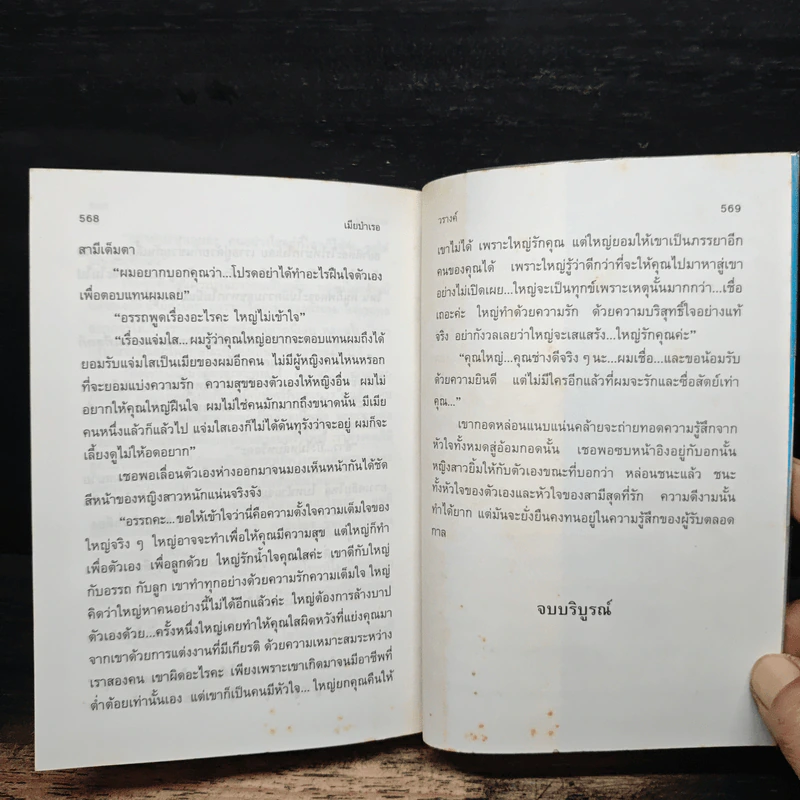 568
เมียบำเรอ
สามีเต็มตา
“ผมอยากบอกคุณว่า...โปรดอย่าได้ทำอะไรฝืนใจตัวเอง
เพื่อตอบแทนผมเลย”
“อรรถพูดเรื่องอะไรคะ ใหญ่ไม่เข้าใจ”
“เรื่องแจ่มใส...ผมรู้ว่าคุณใหญ่อยากจะตอบแทนผมถึงได้
ยอมรับแจ่มใสเป็นเมียของผมอีกคน ไม่มีผู้หญิงคนไหนหรอก
ที่จะยอมแบ่งความรัก ความสุขของตัวเองให้หญิงอื่น ผมไม่
อยากให้คุณใหญ่ฝืนใจ ผมไม่ใช่คนมักมากถึงขนาดนั้น มีเมีย
คนหนึ่งแล้วก็แล้วไป แจ่มใสเองก็ไม่ได้ดันทุรังว่าจะอยู่ ผมก็จะ
เลี้ยงดูไม่ให้อดอยาก”
เชอพอเลื่อนตัวห่างออกมาจนมองเห็นหน้ากันได้ชัด
สีหน้าของหญิงสาวหนักแน่นจริงจัง
“อรรถคะ...ขอให้เข้าใจว่านี่คือความตั้งใจความเต็มใจของ
ใหญ่จริง ๆ ใหญ่อาจจะทำเพื่อให้คุณมีความสุข แต่ใหญ่ก็ทำ
เพื่อตัวเอง เพื่อลูกด้วย ใหญ่รักน้ำใจคุณใสค่ะ เขาดีกับใหญ่
กับอรรถ กับลูก เขาทำทุกอย่างด้วยความรักความเต็มใจ ใหญ่
คิดว่าใหญ่หาคนอย่างนี้ไม่ได้อีกแล้วค่ะ ใหญ่ต้องการล้างบาป
ตัวเองด้วย...ครั้งหนึ่งใหญ่เคยทำให้คุณใสผิดหวังที่แย่งคุณมา
จากเขาด้วยการแต่งงานที่มีเกียรติ ด้วยความเหมาะสมระหว่าง
เราสองคน เขาผิดอะไรคะ เพียงเพราะเขาเกิดมาจนมีอาชีพที่
ต่ำต้อยเท่านั้นเอง แต่เขาก็เป็นคนมีหัวใจ... ใหญ่ยกคุณคืนให้
วรางค์
569
เขาไม่ได้ เพราะใหญ่รักคุณ แต่ใหญ่ยอมให้เขาเป็นภรรยาอีก
คนของคุณได้ เพราะใหญ่รู้ว่าดีกว่าที่จะให้คุณไปมาหาสู่เขา
อย่างไม่เปิดเผย...ใหญ่จะเป็นทุกข์เพราะเหตุนั้นมากกว่า...เชื่อ
เถอะค่ะ ใหญ่ทำด้วยความรัก ด้วยความบริสุทธิ์ใจอย่างแท้
จริง อย่ากังวลเลยว่าใหญ่จะเสแสร้ง...ใหญ่รักคุณค่ะ”
“คุณใหญ่...คุณช่างดีจริง ๆ นะ...ผมเชื่อ...และขอน้อมรับ
ด้วยความยินดี แต่ไม่มีใครอีกแล้วที่ผมจะรักและซื่อสัตย์เท่า
คุณ...”
เขากอดหล่อนแนบแน่นคล้ายจะถ่ายทอดความรู้สึกจาก
หัวใจทั้งหมดสู่อ้อมกอดนั้น เชอพอซบหน้าอิงอยู่กับอกนั้น
หญิงสาวยิ้มให้กับตัวเองขณะที่บอกว่า หล่อนชนะแล้ว ชนะ
ทั้งหัวใจของตัวเองและหัวใจของสามีสุดที่รัก ความดีงามนั้น
ทำได้ยาก แต่มันจะยั่งยืนคงทนอยู่ในความรู้สึกของผู้รับตลอด
กาล
จบบริบูรณ์